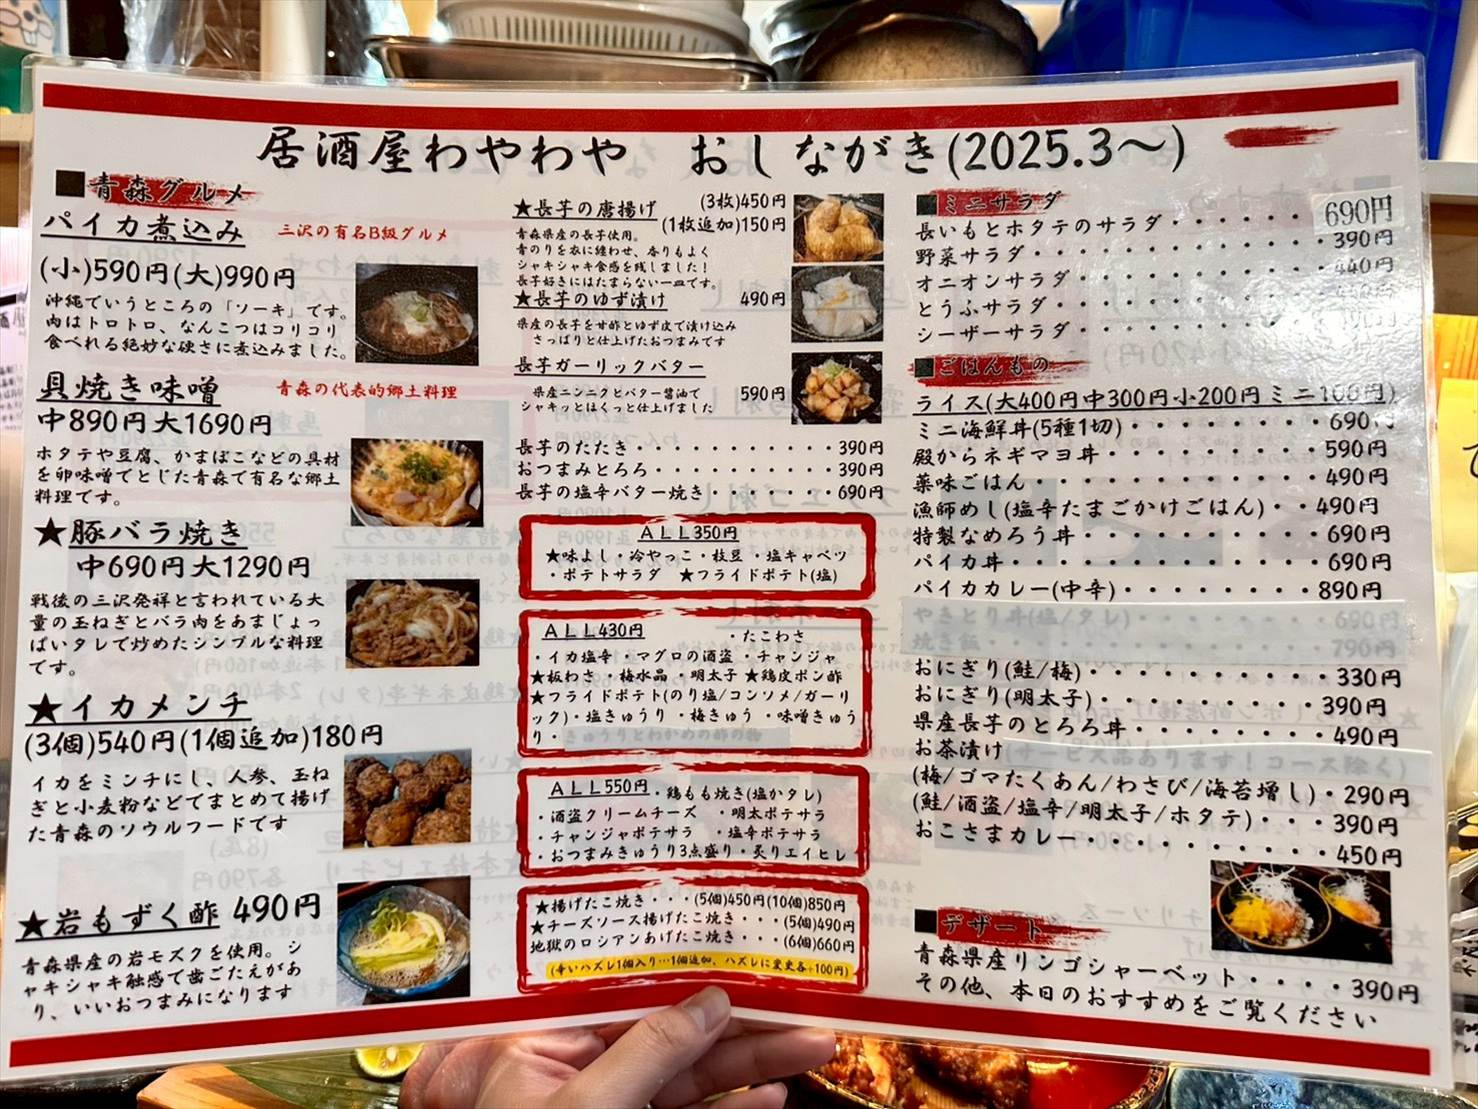 居酒屋わやわや おしながき(2025.3〜)
■青森グルメ
パイカ煮込み 三沢の有名B級グルメ
(小)590円(大)990円
沖縄でいうところの「ソーキ」です。
肉はトロトロ、なんこつはコリコリ
食べれる絶妙な硬さに煮込みました。
貝焼き味噌 青森の代表的郷土料理
中890円大1690円
ホタテや豆腐、かまぼこなどの具材
を卵味噌でとじた青森で有名な郷土
料理です。
★豚バラ焼き
中690円大1290円
戦後の三沢発祥と言われている大
量の玉ねぎとバラ肉をあまじょっ
ぱいタレで炒めたシンプルな料理
です。
★イカメンチ
(3個)540円(1個追加)180円
イカをミンチにし、人参、玉ね
ぎと小麦粉などでまとめて揚げ
た青森のソウルフードです
★岩もずく酢 490円
青森県産の岩モズクを使用。シ
ャキシャキ触感で歯ごたえがあ
り、いいおつまみになります
★長芋の唐揚げ (3枚)450円
(1枚追加)150円
青森県産の長芋使用。
青のりを衣に纏わせ、香りもよく
シャキシャキ食感を残しました!
長芋好きにはたまらない一皿です。
★長芋のゆず漬け 490円
県産の長芋を甘酢とゆず皮で漬け込み
さっぱりと仕上げたおつまみです
長芋ガーリックバター
県産ニンニクとバター醤油で 590円
シャキッとほくっと仕上げました
長芋のたたき・・・・・・・・・・390円
おつまみとろろ・・・・・・・・・390円
長芋の塩辛バター焼き・・・・・・690円
ALL350円
★味よし・冷やっこ・枝豆・塩キャベツ
・ポテトサラダ ★フライドポテト(塩)
ALL430円 ・たこわさ
・イカ塩辛・マグロの酒盗・チャンジャ
★板わさ・梅水晶・明太子★鶏皮ポン酢
★フライドポテト(のり塩/コンソメ/ガーリ
ック)・塩きゅうり・梅きゅう・味噌きゅう
り・きゅうりとわかめの酢の物
ALL550円・鶏もも焼き(塩かタレ)
・酒盗クリームチーズ ・明太ポテサラ
・チャンジャポテサラ ・塩辛ポテサラ
・おつまみきゅうり3点盛り・炙りエイヒレ
★揚げたこ焼き・・・(5個)450円(10個)850円
★チーズソース揚げたこ焼き・・・(5個)490円
地獄のロシアンあげたこ焼き・・・(6個)660円
(辛いハズレ1個入り…1個追加、ハズレに変更各+100円)
■ミニサラダ
長いもとホタテのサラダ・・・・・・690円
野菜サラダ・・・・・・・・・・・・390円
オニオンサラダ・・・・・・・・・・440円
とうふサラダ・・・・・・・・・・・
シーザーサラダ・・・・・・・・・・
■ごはんもの
ライス(大400円中300円小200円ミニ100円)
ミニ海鮮丼(5種1切)・・・・・・・・690円
殿からネギマヨ丼・・・・・・・・・590円
薬味ごはん・・・・・・・・・・・・490円
漁師めし(塩辛たまごかけごはん)・・490円
特製なめろう丼・・・・・・・・・・690円
パイカ丼・・・・・・・・・・・・・690円
パイカカレー(中辛)・・・・・・・・890円
やきとり丼(塩/タレ)・・・・・・・690円
焼き飯・・・・・・・・・・・・・・790円
おにぎり(鮭/梅)・・・・・・・・・330円
おにぎり(明太子)・・・・・・・・・390円
県産長芋のとろろ丼・・・・・・・・490円
お茶漬け
(梅/ゴマたくあん/わさび/海苔増し)・290円
(鮭/酒盗/塩辛/明太子/ホタテ)・・・390円
おこさまカレー・・・・・・・・・・450円
■デザート
青森県産リンゴシャーベット・・・・390円
その他、本日のおすすめをご覧ください